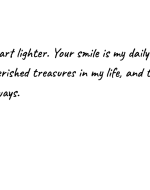 art lighter. Your smile is my daily
erished treasures in my life, and t
ways.